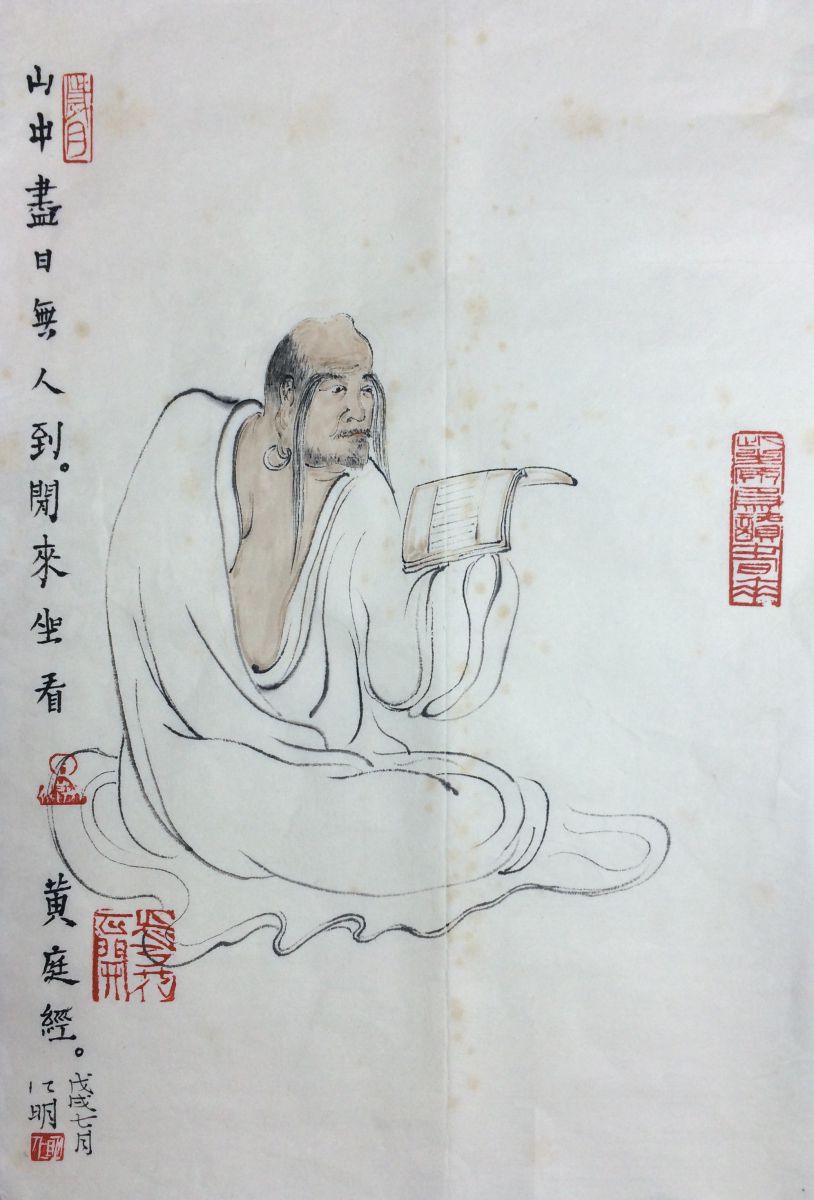 歲月
山中盡日無人到。閒來坐看黄庭經。
戊戌七月
仁明